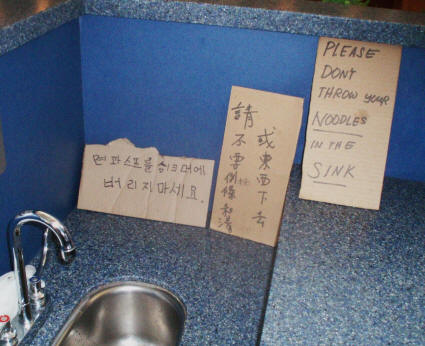 면과 스프를 싱크대에
버리지마세요.
請不要倒條和湯
或東西下去
PLEASE
DONT
THROW YOUR
NOODLES
IN THE
SINK